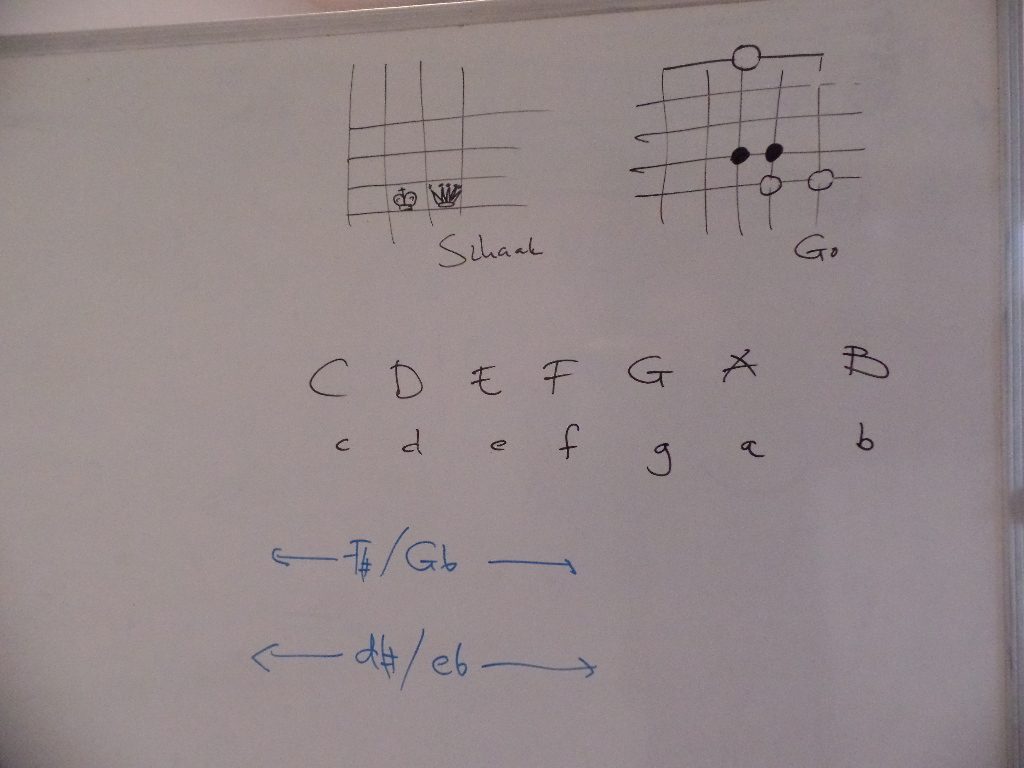 Schaak Go
C D E F G A B
c d e f g a b
← F#/Gb →
← d#/eb →